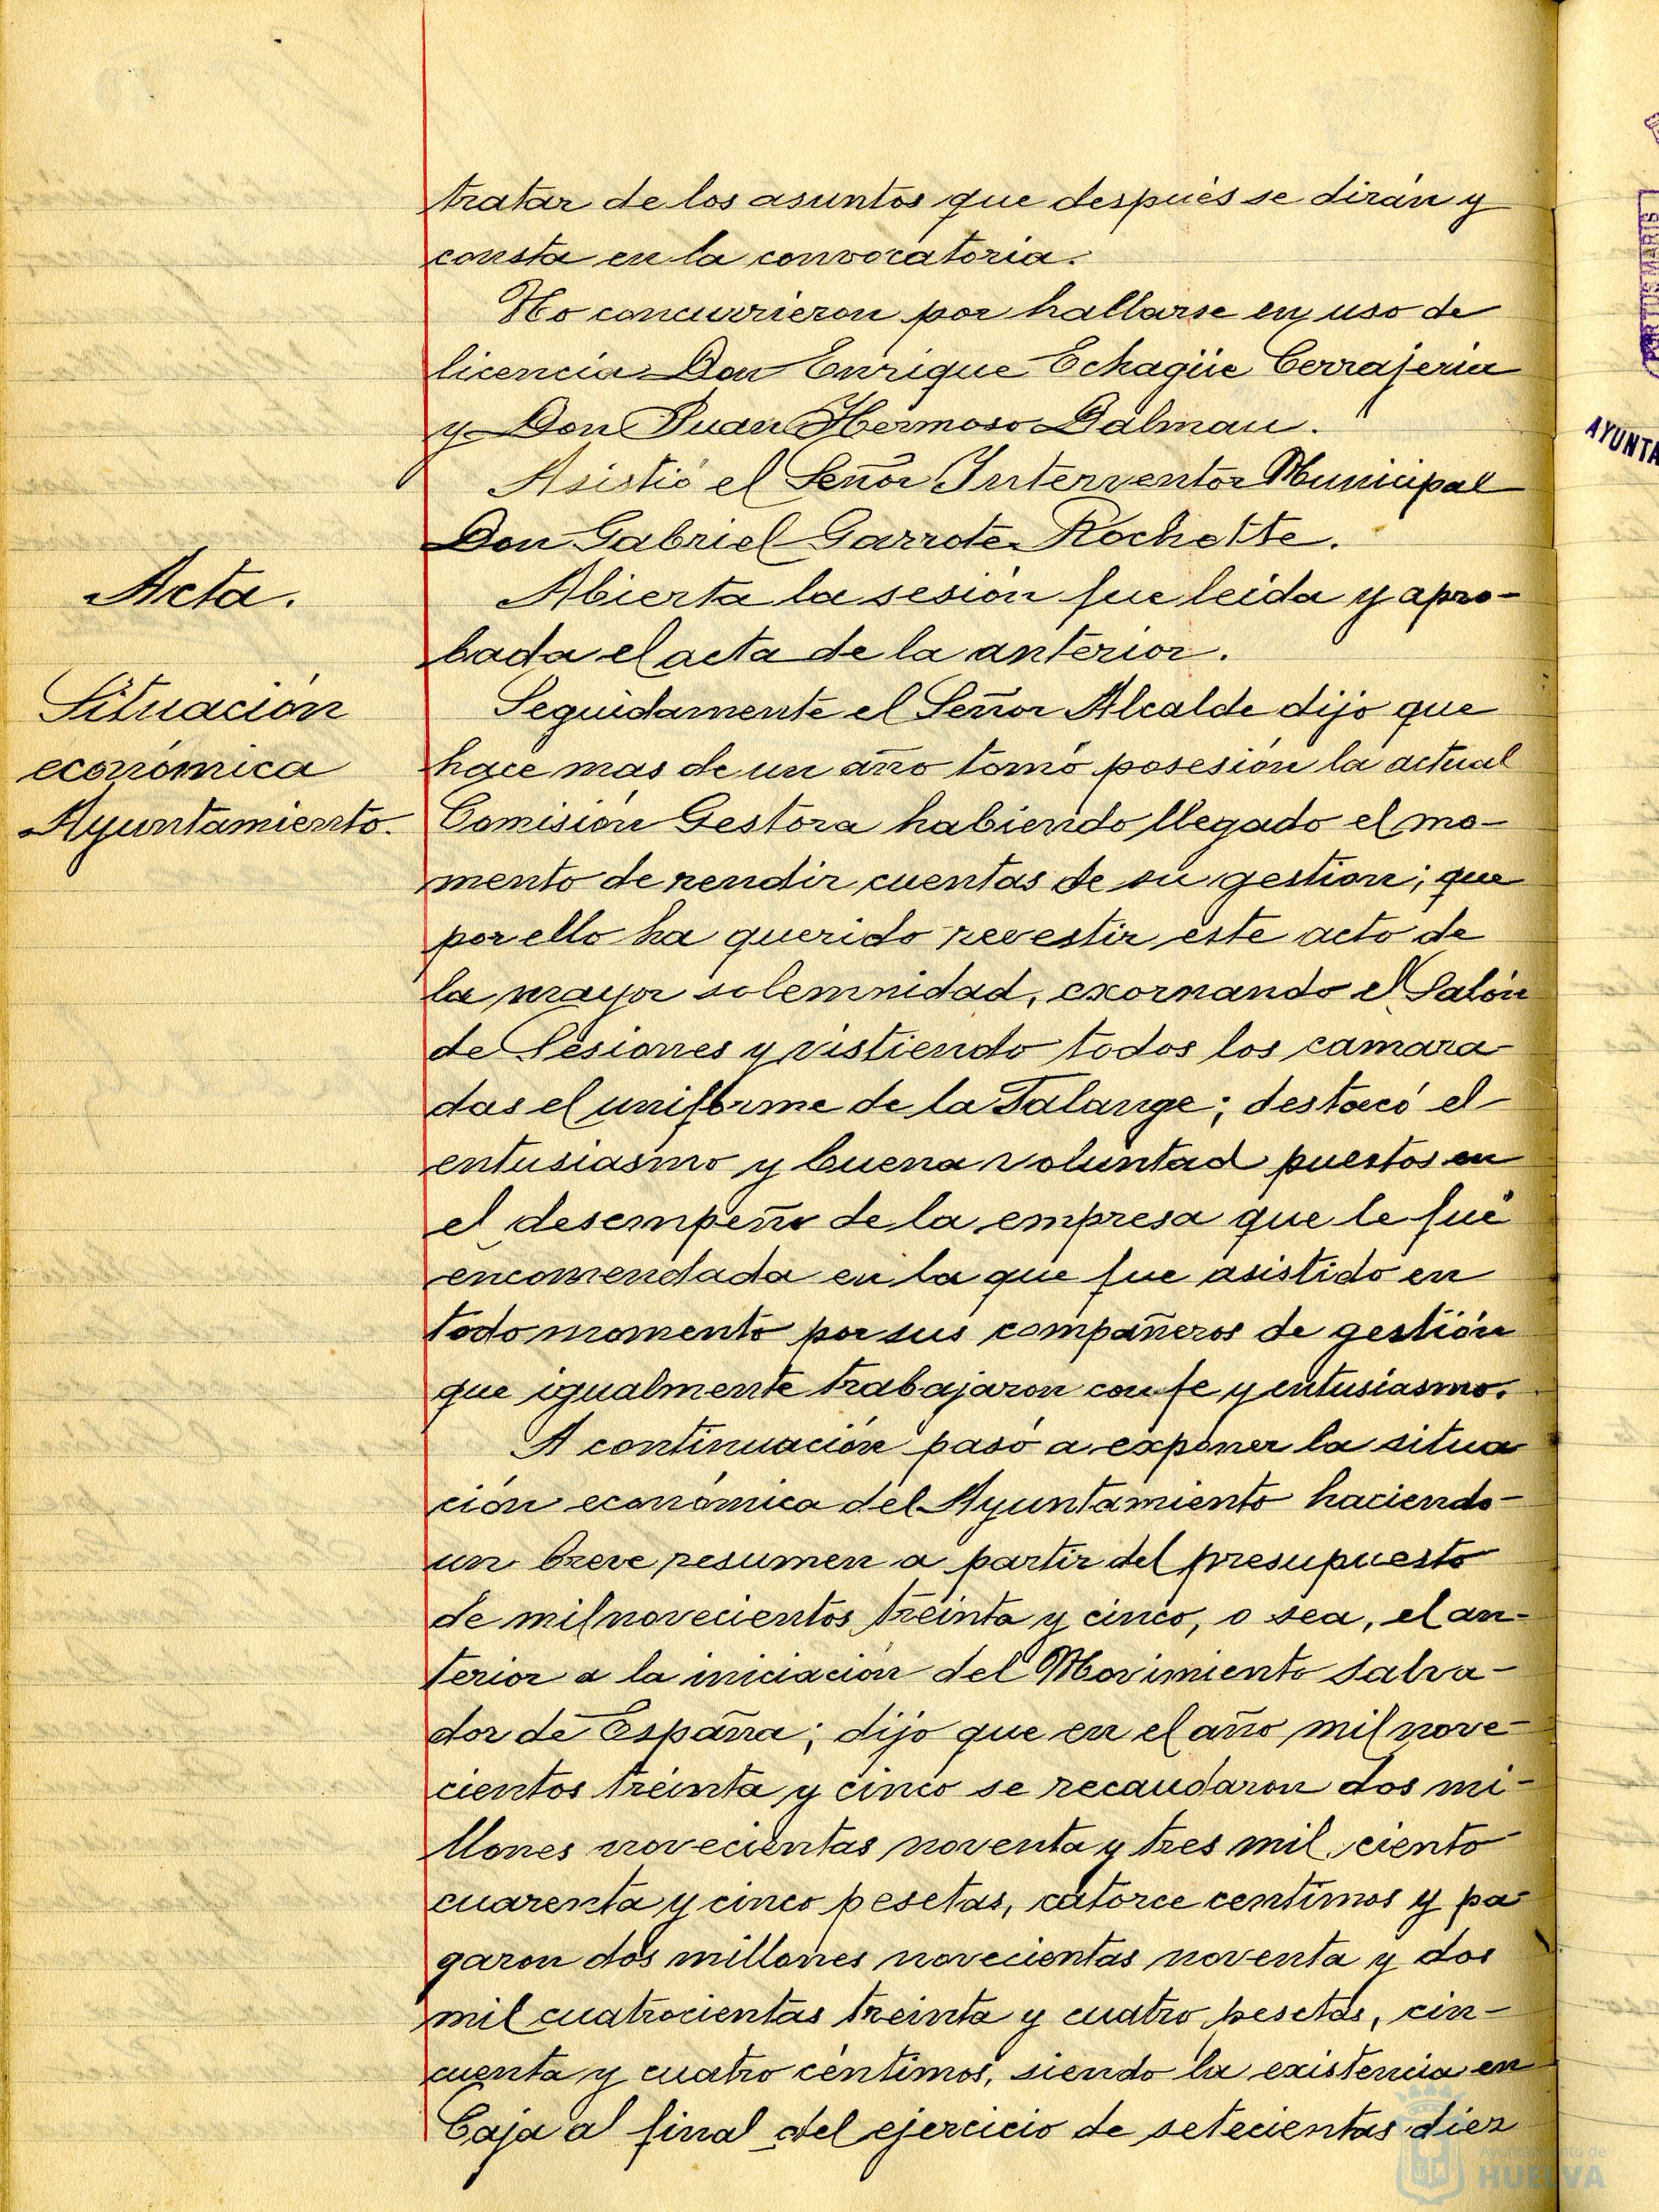 tratar de los asuntos que después se dirán y
consta en la convocatoria.
No concurrieron por hallarse en uso de
licencia Don Enrique Echagüe Cerrajeria
y Don Juan Hermoso Dalmau.
Asistió el Señor Interventor Municipal
Don Gabriel Garrote Rochette.
Acta.
Abierta la sesión fue leida y apro-
bada el acta de la anterior.
Situación
económica
Ayuntamiento.
Seguidamente el Señor Alcalde dijo que
hace mas de un año tomó posesión la actual
Comisión Gestora habiendo llegado el mo-
mento de rendir cuentas de su gestion; que
por ello ha querido revestir este acto de
la mayor solemnidad, exornando el Salón
de Sesiones y vistiendo todos los camara-
das el uniforme de la Falange; destacó el
entusiasmo y buena voluntad puestos en
el desempeño de la empresa que le fué
encomendada en la que fue asistido en
todo momento por sus compañeros de gestión
que igualmente trabajaron con fe y entusiasmo.
A continuación pasó a exponer la situa
ción económica del Ayuntamiento haciendo
un breve resumen a partir del presupuesto
de mil novecientos treinta y cinco, o sea, el an-
terior a la iniciación del Movimiento salva-
dor de España; dijo que en el año mil nove-
cientos treinta y cinco se recaudaron dos mi-
llones novecientas noventa y tres mil ciento
cuarenta y cinco pesetas, catorce centimos y pa-
garon dos millones novecientas noventa y dos
mil cuatrocientas treinta y cuatro pesetas, cin-
cuenta y cuatro céntimos, siendo la existencia en
Caja al final del ejercicio de setecientas diez
AYUNTA
Ayuntamiento de
HUELVA